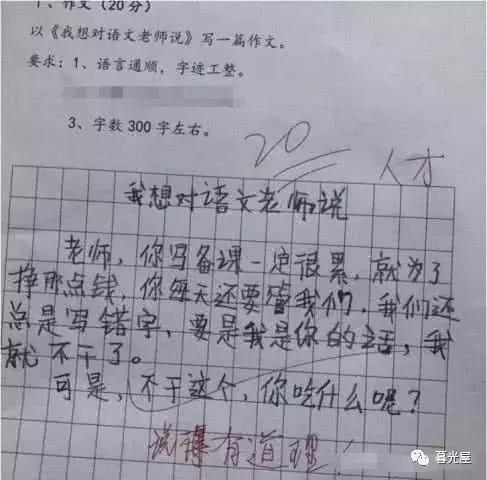 1、作文(20分)
以《我想对语文老师说》写一篇作文。
要求:1、语言通顺,字迹工整。
3、字数300字左右。
20
人才
我想对语文老师说
老师,你写备课一定很累,就为了
挣那点钱,你每天还要管我们,我们还
总是写错字,要是我是你的话,我
就不干了。
可是,不干这个,你吃什么呢?
说得有道理!
暮光屋